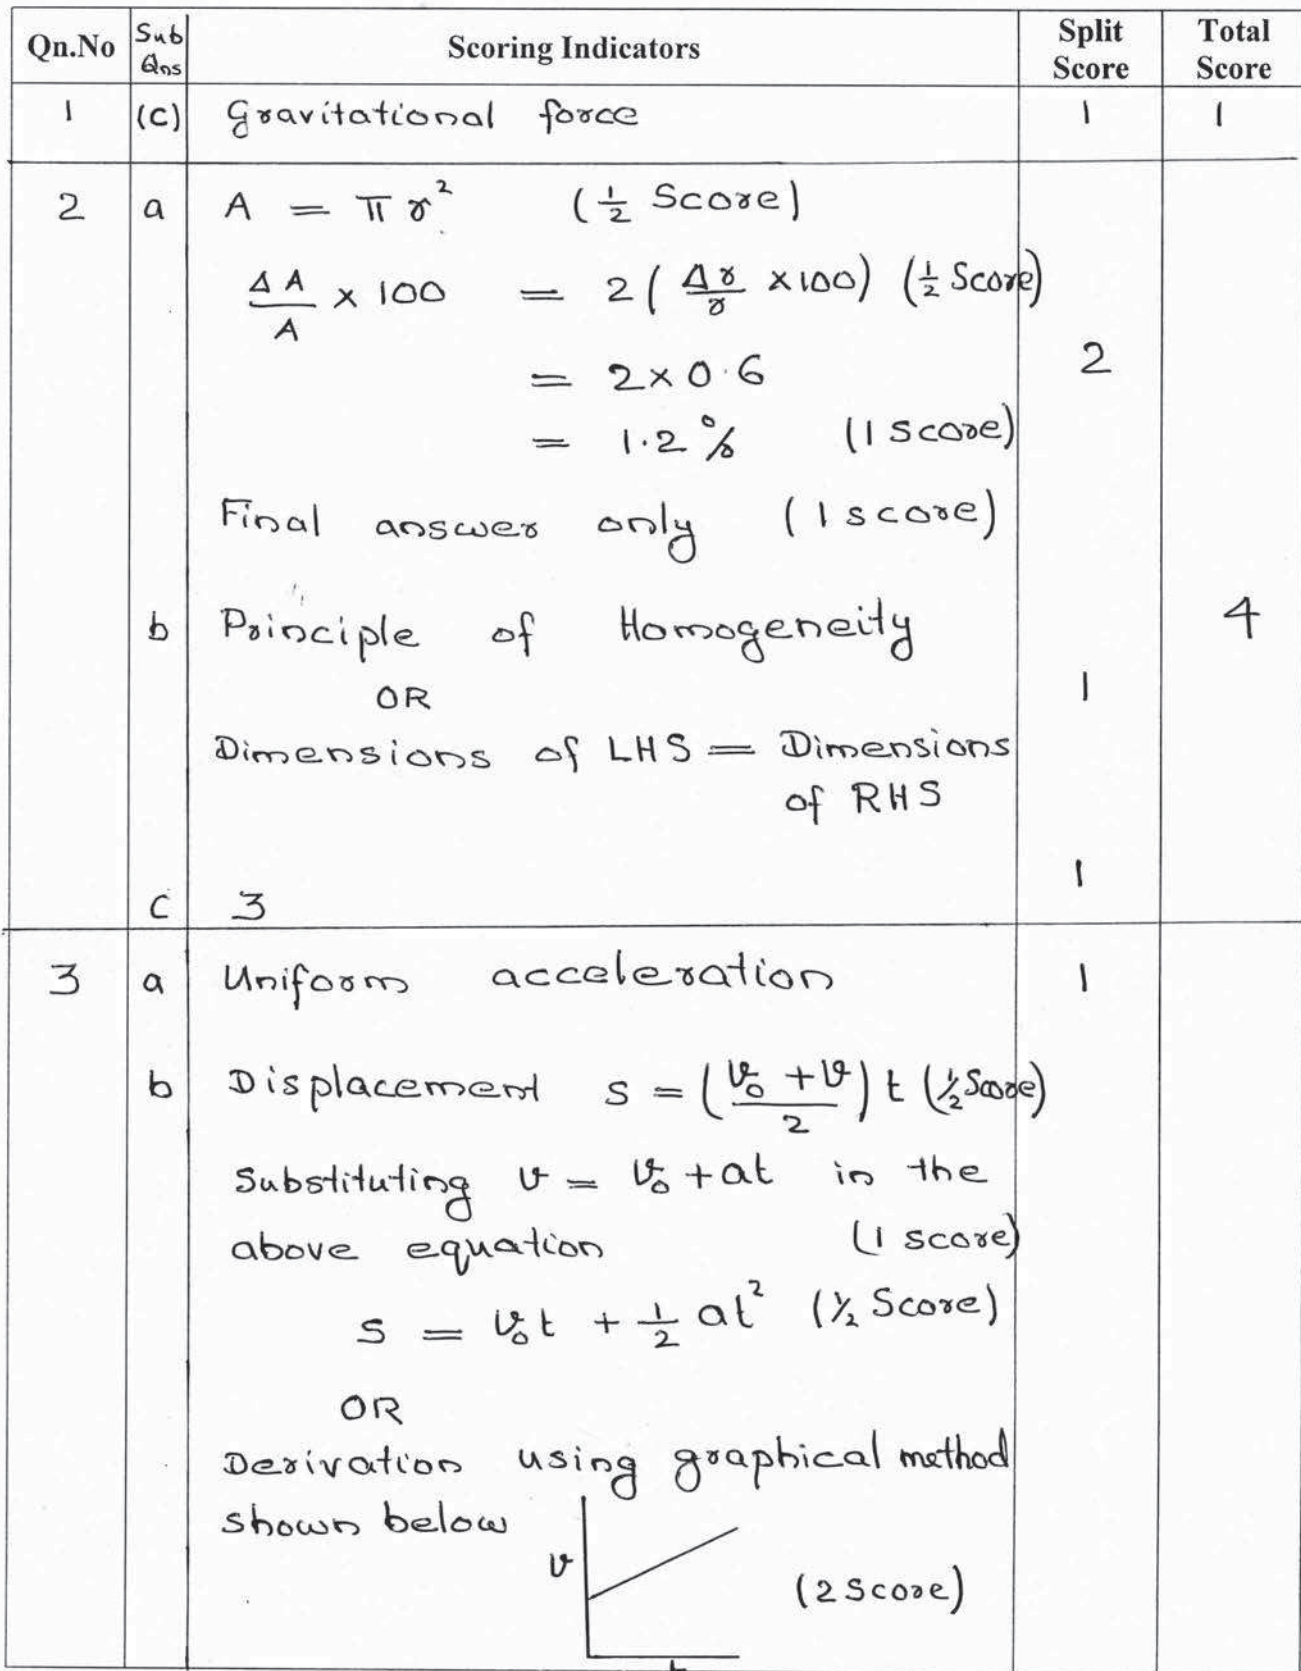 Qn.No Sub Qns Scoring Indicators Split Score Total Score
1 (c) Gravitational force 1 1
2 a A = πr² (½ Score)
ΔA/A × 100 = 2(Δr/r × 100) (½ Score)
= 2×0.6 2
= 1.2% (1 score)
Final answer only (1 score)
b Principle of Homogeneity 4
OR 1
Dimensions of LHS = Dimensions
of RHS
1
c 3
3 a Uniform acceleration 1
b Displacement s = (v₀ + v / 2) t (½ Score)
Substituting v = v₀ + at in the
above equation (1 score)
s = v₀t + ½ at² (½ Score)
OR
Derivation using graphical method
shown below
v
(2 Score)
t